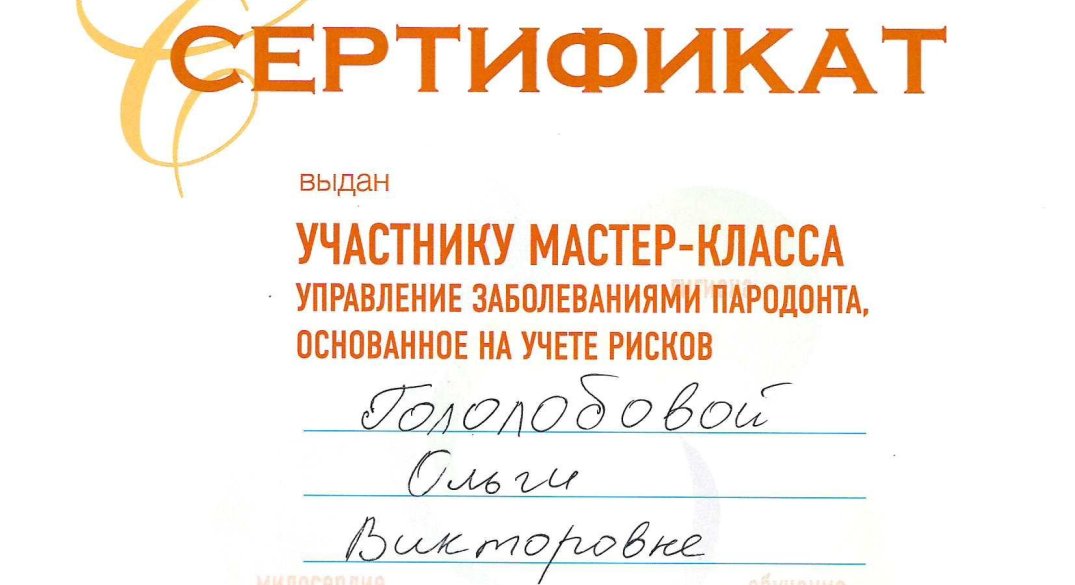 СЕРТИФИКАТ
выдан
УЧАСТНИКУ МАСТЕР-КЛАССА
УПРАВЛЕНИЕ ЗАБОЛЕВАНИЯМИ ПАРОДОНТА,
ОСНОВАННОЕ НА УЧЕТЕ РИСКОВ
Гололобовой
Ольги
Викторовне
милосердие обучение